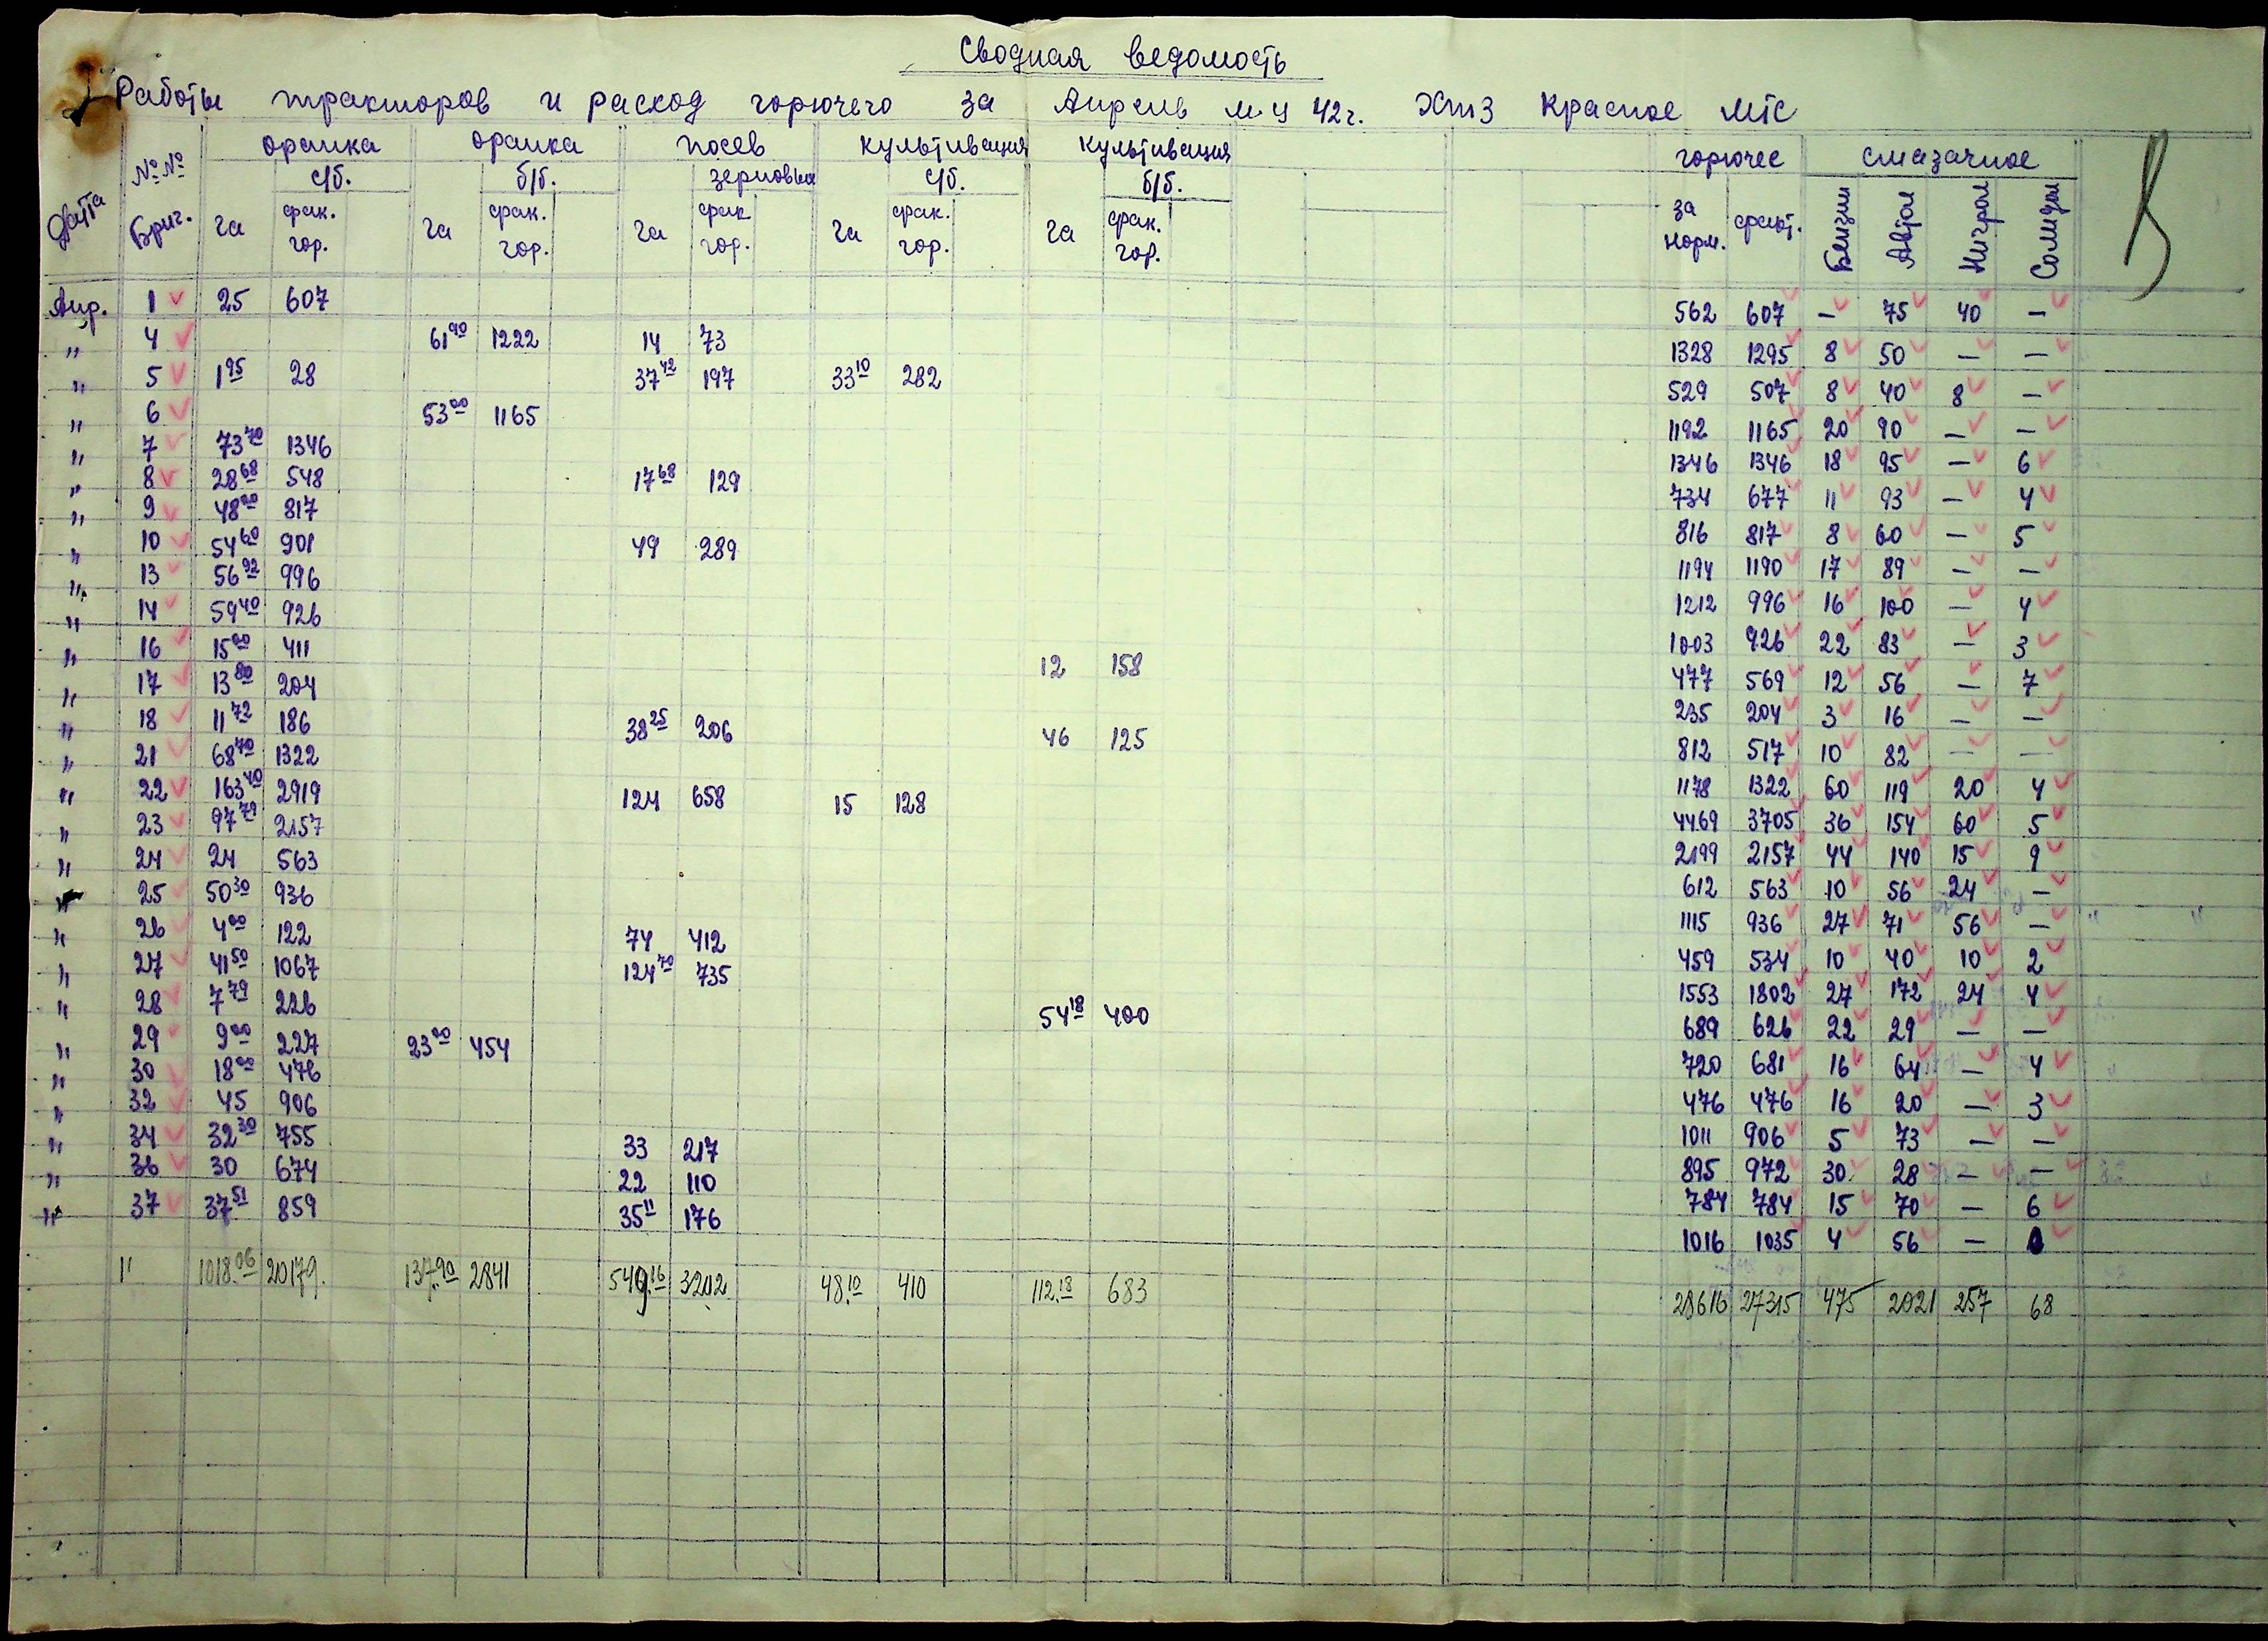 Сводная ведомость
Работы тракторов и расход горючего за Апрель м-ц 42 г. ХТЗ Красное МТС
Датта №№ Бриг. оранка с/б. оранка б/б. посев зерновых культивация с/б. культивация б/б. горючее смазачное
га фак. гор. га фак. гор. га фак гор. га фак. гор. га фак. гор. за норм. факт. Бензин Автол Нигрол Солидол
Апр. 1 25 607 562 607 — 75 40 —
" 4 61 90 1222 14 73 1328 1295 8 50 — —
" 5 1 95 28 37 42 197 33 10 282 529 507 8 40 8 —
" 6 53 00 1165 1192 1165 20 90 — —
" 7 73 70 1346 1346 1346 18 95 — 6
" 8 28 68 548 17 68 129 734 677 11 93 — 4
" 9 48 00 817 816 817 8 60 — 5
" 10 54 60 901 49 289 1194 1190 17 89 — —
" 13 56 92 996 1212 996 16 100 — 4
" 14 59 40 926 1003 926 22 83 — 3
" 16 15 00 411 12 158 477 569 12 56 — 7
" 17 13 80 204 235 204 3 16 — —
" 18 11 72 186 38 25 206 46 125 812 517 10 82 — —
" 21 68 70 1322 1178 1322 60 119 20 4
" 22 163 40 2919 124 658 15 128 4469 3705 36 154 60 5
" 23 97 79 2157 2199 2157 44 140 15 9
" 24 24 563 612 563 10 56 24 —
" 25 50 30 936 1115 936 27 71 56 —
" 26 4 00 122 74 412 459 534 10 40 10 2
" 27 41 50 1067 124 70 735 1553 1802 27 172 24 4
" 28 7 79 226 54 18 400 689 626 22 29 — —
" 29 9 00 227 23 00 454 720 681 16 64 — 4
" 30 18 00 476 476 476 16 20 — 3
" 32 45 906 1011 906 5 73 — —
" 34 32 30 755 33 217 895 972 30 28 — —
" 36 30 674 22 110 784 784 15 70 — 6
" 37 37 51 859 35 11 176 1016 1035 4 56 —
" 1018.06 20179. 137.90 2841 549.16 3202 48.10 410 112.18 683 28616 27315 475 2021 257 68